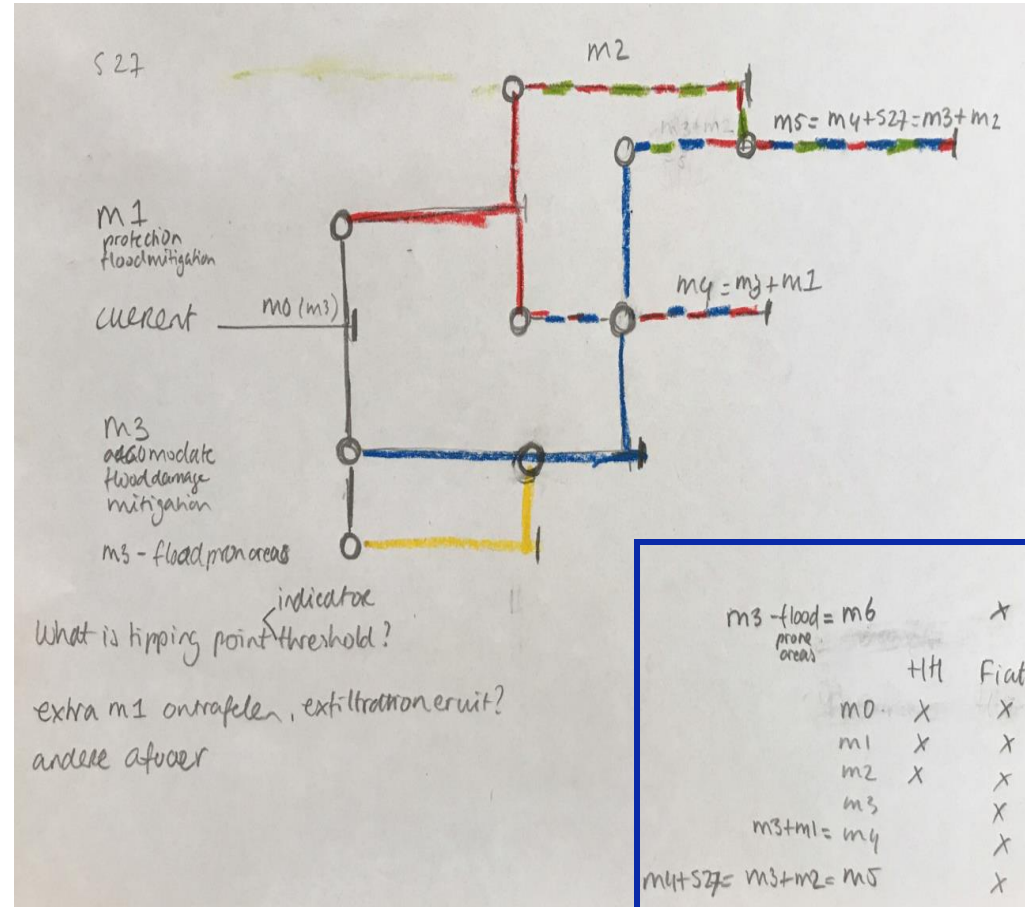 S27
m2
m5 = m4 + S27 = m3 + m2
m3+m2
m1
protection
flood mitigation
m0 (m3)
current
m4 = m3 + m1
m3
accomodate
flood damage
mitigation
m3 - flood pron areas
indicator
What is tipping point threshold?
extra m1 ontrafelen, exfiltration eruit?
andere afvoer
m3 - flood = m6 X
prone
areas
HH Fiat
m0 X X
m1 X X
m2 X X
m3 X
m3+m1 = m4 X
m4+S27 = m3+m2 = m5 X